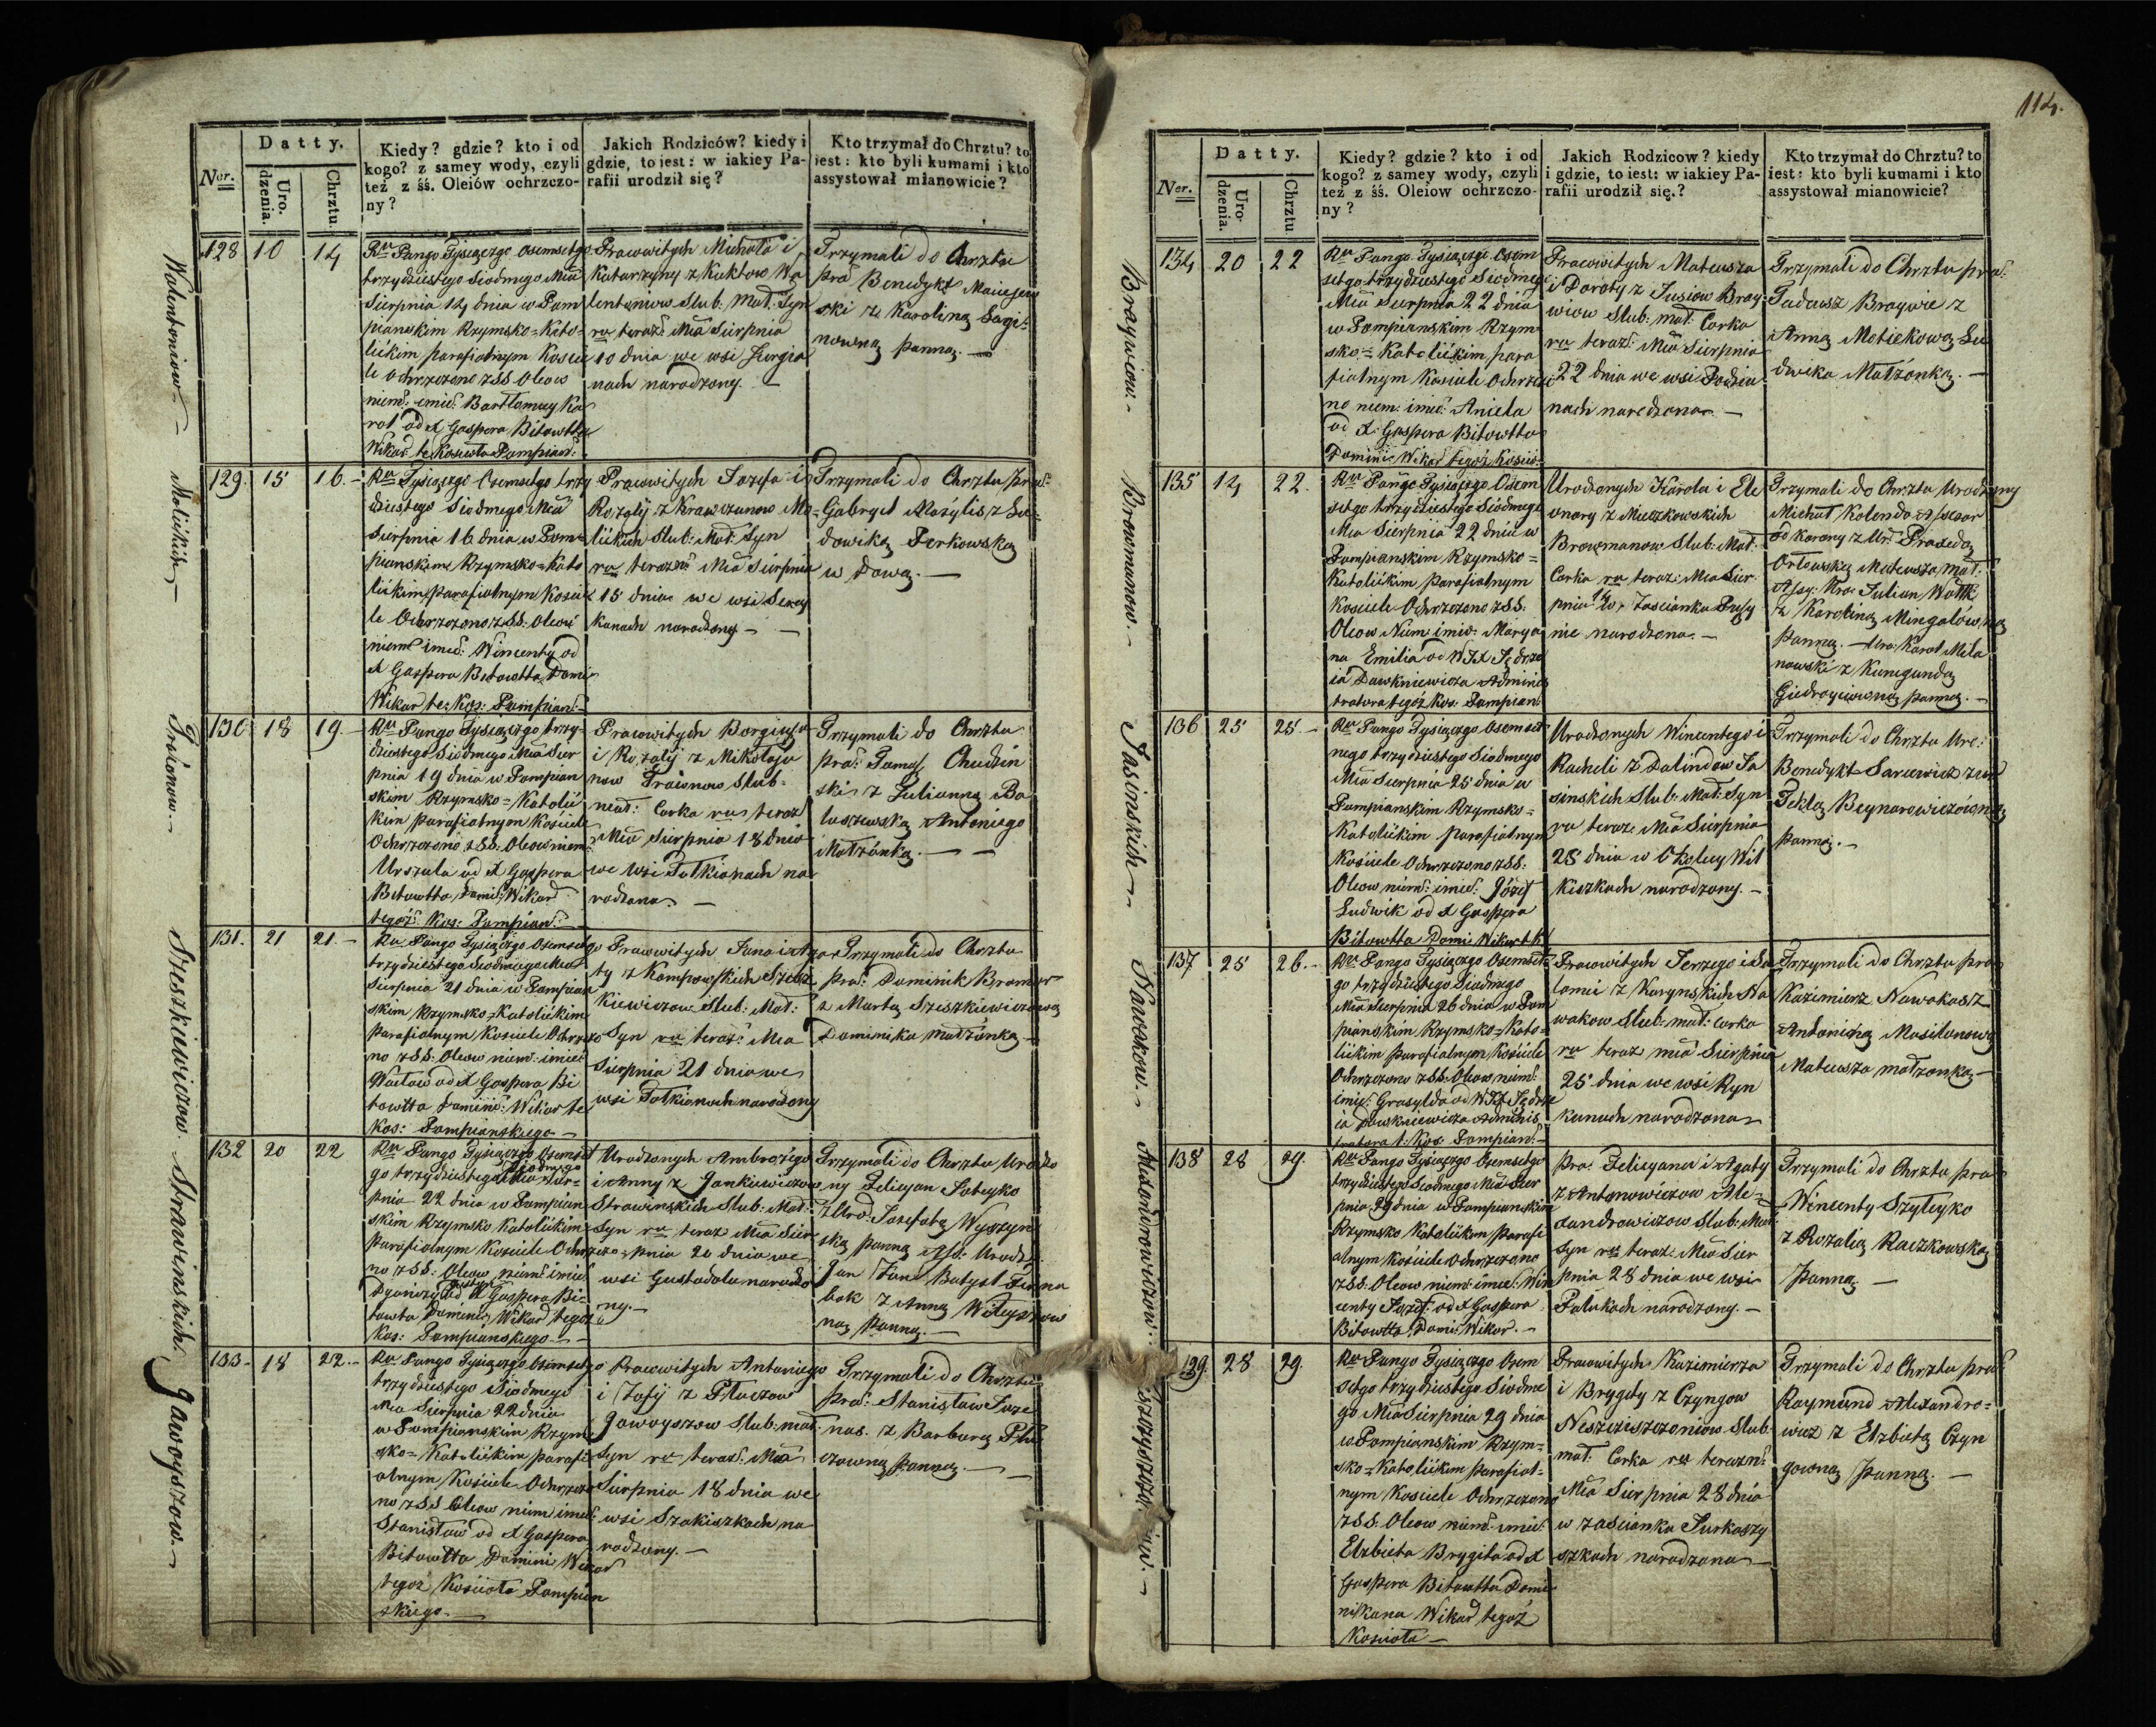 Datty.
Ner.
Uro-
dzenia.
Chrztu
Kiedy? gdzie? kto i od
kogo? z samey wody, czyli
też z śś. Oleiów ochrzczo-
ny?
Jakich Rodziców? kiedy i
gdzie, to iest: w iakiey Pa-
rafii urodził się?
Kto trzymał do Chrztu? to
iest: kto byli kumami i kto
assystował mianowicie?
Walentoniow.
128 10 14
Ru Pańgo Tysiączgo osemsetgo
trzydziestego Siodmego Mca
Sierpnia 14 dnia w Pom
pianskim Rzymsko-Kato-
lickim parafialnym Koscie
le ochrzczono z SS Oleow
niem: imie: Bartłomiey Ka
rol od X Gaspera Bitowtta
Wikar: te Kosciola Pompian:
Pracowitych Michała i
Katarzyny z Kuktow Wa
lentaniow Slub. Mał: Syn
ru teraz: Mca Sierpnia
10 dnia we wsi Jurgia
nach narodzony. —
Trzymali do Chrztu
pra: Benedykt Maiejew
ski z Karoliną Sagi-
nowną panną. —
Malickich
129. 15 16.
Ru Tysiączgo Osemsetgo trzy
dziestego Siodmego Mca
Sierpnia 16 dnia w Pom-
pianskim Rzymsko-Kato
lickim parafialnym Koscie
le Ochrzczono z SS: Oleow
niem: imie: Wincenty od
X Gaspera Bitowtta Domi
Wikar te: Kos: Pompian:
Pracowitych Jozefa i
Rozalij z Krawczunow Ma-
lickich Slub: Mał: Syn
ru teraz: Mca Sierpnia
15 dnia we wsi
kanach narodzony —
Trzymali do Chrztu pra:
Gabryel Mozylis z Lu-
dowiką Perkowską
wdową. —
Praionow.
130 18 19.
Ru Pańgo Tysiączgo trzy-
dziestego Siodmego Mca Sier
pnia 19 dnia w Pompian
skim Rzymsko-Katolic
kim parafialnym Kosciele
Ochrzczono z SS. Oleow niem:
Urszula od X Gaspera
Bitowtta Domi: Wikar
tegoż Kos: Pompian:
Pracowitych Borgiasza
i Rozalij z Mikołaju
now Praionow Slub-
mał: Corka ru teraz
Mca Sierpnia 18 dnia
we wsi Totkianach na
rodzona. —
Trzymali do Chrztu
pra: Tamosz Chudzin
ski z Julianną Ba
luszewską Antoniego
Małżonką. —
Szeszkiewiczow.
131. 21 21.
Ru Pańgo Tysiączgo Osemsetgo
trzydziestego Siodmego Mca
Sierpnia 21 dnia w Pompian
skim Rzymsko-Katolickim
parafialnym Kosciele Ochrzczo
no z SS. Oleow niem: imie:
Wacław od X Gaspera Bi
towtta Domini: Wikar te
Kos: Pompianskiego —
Pracowitych Jana i Agar
ty z Kompowskich Szesz
kiewiczow Slub: Mał:
Syn ru teraz: Mca
Sierpnia 21 dnia we
wsi Totkianach narodzony
Trzymali do Chrztu
pra: Dominik Kromer
z Martą Szeszkiewiczową
Dominika małżonką —
Strawinskich.
132 20 22
Ru Pańgo Tysiączgo Osemset
go trzydziestego Siodmego Mca Sier-
pnia 22 dnia w Pompian
skim Rzymsko Katolickim
parafialnym Kosciele Ochrzczo
no z SS: Oleow niem: imie
Dyonizy od X Gaspera Bi-
towtta Domini: Wikar tegoż
Kos: Pompianskiego —
Urodzonych Ambrożego
i Anny z Jankiewiczow
Strawinskich Slub: Mał:
Syn ru teraz Mca Sier
pnia 20 dnia we
wsi Gustadalu narodzo
ny. —
Trzymali do Chrztu Urodzo
ny Felicyan Soteyko
z Urod: Jozefatą Wyszyn
ską panną Ass: Urodz:
Jan Batyst
bok z Anną
ną panną. —
Jawoyszow.
133. 18 22.
Ru Pańgo Tysiączgo Osemsetgo
trzydziestego Siodmego
Mca Sierpnia 22 dnia
w Pompianskim Rzym-
sko-Katolickim parafi
alnym Kosciele Ochrzczo
no z SS Oleow niem imie:
Stanisław od X Gaspera
Bitowtta Domini Wikar
tegoż Kosciola Pompian
skiego. —
Pracowitych Antoniego
i Zofij z Płaczow
Jawoyszow Slub: mał:
Syn ru teraz: Mca
Sierpnia 18 dnia we
wsi Szakiszkach na
rodzony. —
Trzymali do Chrztu
pra: Stanisław Juze
nas. z Barbarą Pła
czowną panną. —
114.
Datty.
Ner.
Uro-
dzenia.
Chrztu
Kiedy? gdzie? kto i od
kogo? z samey wody, czyli
też z śś. Oleiow ochrzczo-
ny?
Jakich Rodzicow? kiedy
i gdzie, to iest: w iakiey Pa-
rafii urodził się.?
Kto trzymał do Chrztu? to
iest: kto byli kumami i kto
assystował mianowicie?
Braywiow.
134 20 22
Ru Pańgo Tysiączgo Osem
setgo trzydziestego Siodmeg
Mca Sierpnia 22 dnia
w Pompianskim Rzym
sko-Katolickim para
fialnym Kosciele Ochrzczo
no niem: imie: Aniela
od X: Gaspera Bitowtta
Domini: Wikar tegoż Koscio:
Pracowitych Mateusza
i Doroty z Jusiow Bray
wiow Slub: mał: Corka
ru teraz: Mca Sierpnia
22 dnia we wsi Podziu
nach narodzona. —
Trzymali do Chrztu pra:
Tadeusz Braywie z
Anną Motiekową Lu
dwika Małżonką. —
Browmanow.
135 14 22.
Ru Pańgo Tysiączgo Osem
setgo trzydziestego Siodmego
Mca Sierpnia 22 dnia w
Pompianskim Rzymsko-
Katolickim parafialnym
Kosciele Ochrzczono z SS.
Oleow Niem imie: Marya
na Emilia od WJX Jędrze
ia Dawkniewicza Adminis
tratora tegoż Kos: Pompian:
Urodzonych Karola i Ele
onory z Mieszkowskich
Browmanow Slub: Mał:
Corka ru teraz: Mca Sier-
pnia 14 w Zascianku Pusy
nie narodzona. —
Trzymali do Chrztu Urodzony
Michał Kolenda Assesor
od Korony z Ur: Praxedą
Orłowską Mateusza mał:
Assy: Uro: Julian Wottk
z Karoliną Mingalówną
panną. — Uro: Karol Mila
nowski z Kunegundą
Giedroyciowną panną. —
Jasinskich
136 25 25.
Ru Pańgo Tysiączgo Osemset
nego trzydziestego Siodmego
Mca Sierpnia 25 dnia w
Pompianskim Rzymsko-
Katolickim parafialnym
Kosciele Ochrzczono z SS:
Oleow niem: imie: Józef
Ludwik od X Gaspera
Bitowtta Domi: Wikar t K
Urodzonych Wincentego i
Racheli z Dalindow Ja
sinskich Slub: Mał: Syn
ru teraz: Mca Sierpnia
25 dnia w Okolicy Wit
kiszkach narodzony. —
Trzymali do Chrztu Uro:
Benedykt Sarcewicz z
Teklą Beynarowiczówną
panną. —
Nawakow.
137 25 26.
Ru Pańgo Tysiączgo Osemset
go trzydziestego Siodmego
Mca Sierpnia 26 dnia w Pom
pianskim Rzymsko-Kato-
lickim parafialnym Kosciele
Ochrzczono z SS. Oleow niem:
imie: Grasylda od WJX Jędrze
ia Dawkniewicza Adminis
tratora t: Kos: Pompian:
Pracowitych Jerzego i Sa
lomei z Karynskich Na
wakow Slub: mał: Corka
ru teraz mca Sierpnia
25 dnia we wsi Ryn
kunach narodzona
Trzymali do Chrztu pra
Kazimierz Nawakas z
Antoniną Masilonową
Mateusza małżonką —
Alexandrowiczow.
138 28 29.
Ru Pańgo Tysiączgo Osemsetgo
trzydziestego Siodmego Mca Sier
pnia 29 dnia w Pompianskim
Rzymsko Katolickim parafi
alnym Kosciele ochrzczono
z SS. Oleow niem: imie: Win
centy Jozef: od X Gaspera
Bitowtta Domi: Wikar. —
Pra: Felicyana i Agaty
z Antonowiczow Ale-
xandrowiczow Slub: Mał:
Syn ru teraz: Mca Sier
pnia 28 dnia we wsi
Palukach narodzony. —
Trzymali do Chrztu pra
Wincenty Szyleyko
z Rozalią Raczkowską
panną —
139. 28 29.
Ru Pańgo Tysiączgo Osem
setgo trzydziestego Siodme
go Mca Sierpnia 29 dnia
w Pompianskim Rzym-
sko-Katolickim parafial-
nym Kosciele Ochrzczono
z SS. Oleow niem: imie:
Elzbieta Brygita od X
Gaspera Bitowtta Domi
nikana Wikar tegoż
Kosciola —
Pracowitych Kazimierza
i Brygity z Czyngow
Neszcziszczoniow Slub:
mał: Corka ru terazn:
Mca Sierpnia 28 dnia
w zascianku Surkaszy
szkach narodzona —
Trzymali do Chrztu pra:
Raymund Alexandro-
wicz z Elzbietą Czyn
gowną panną. —